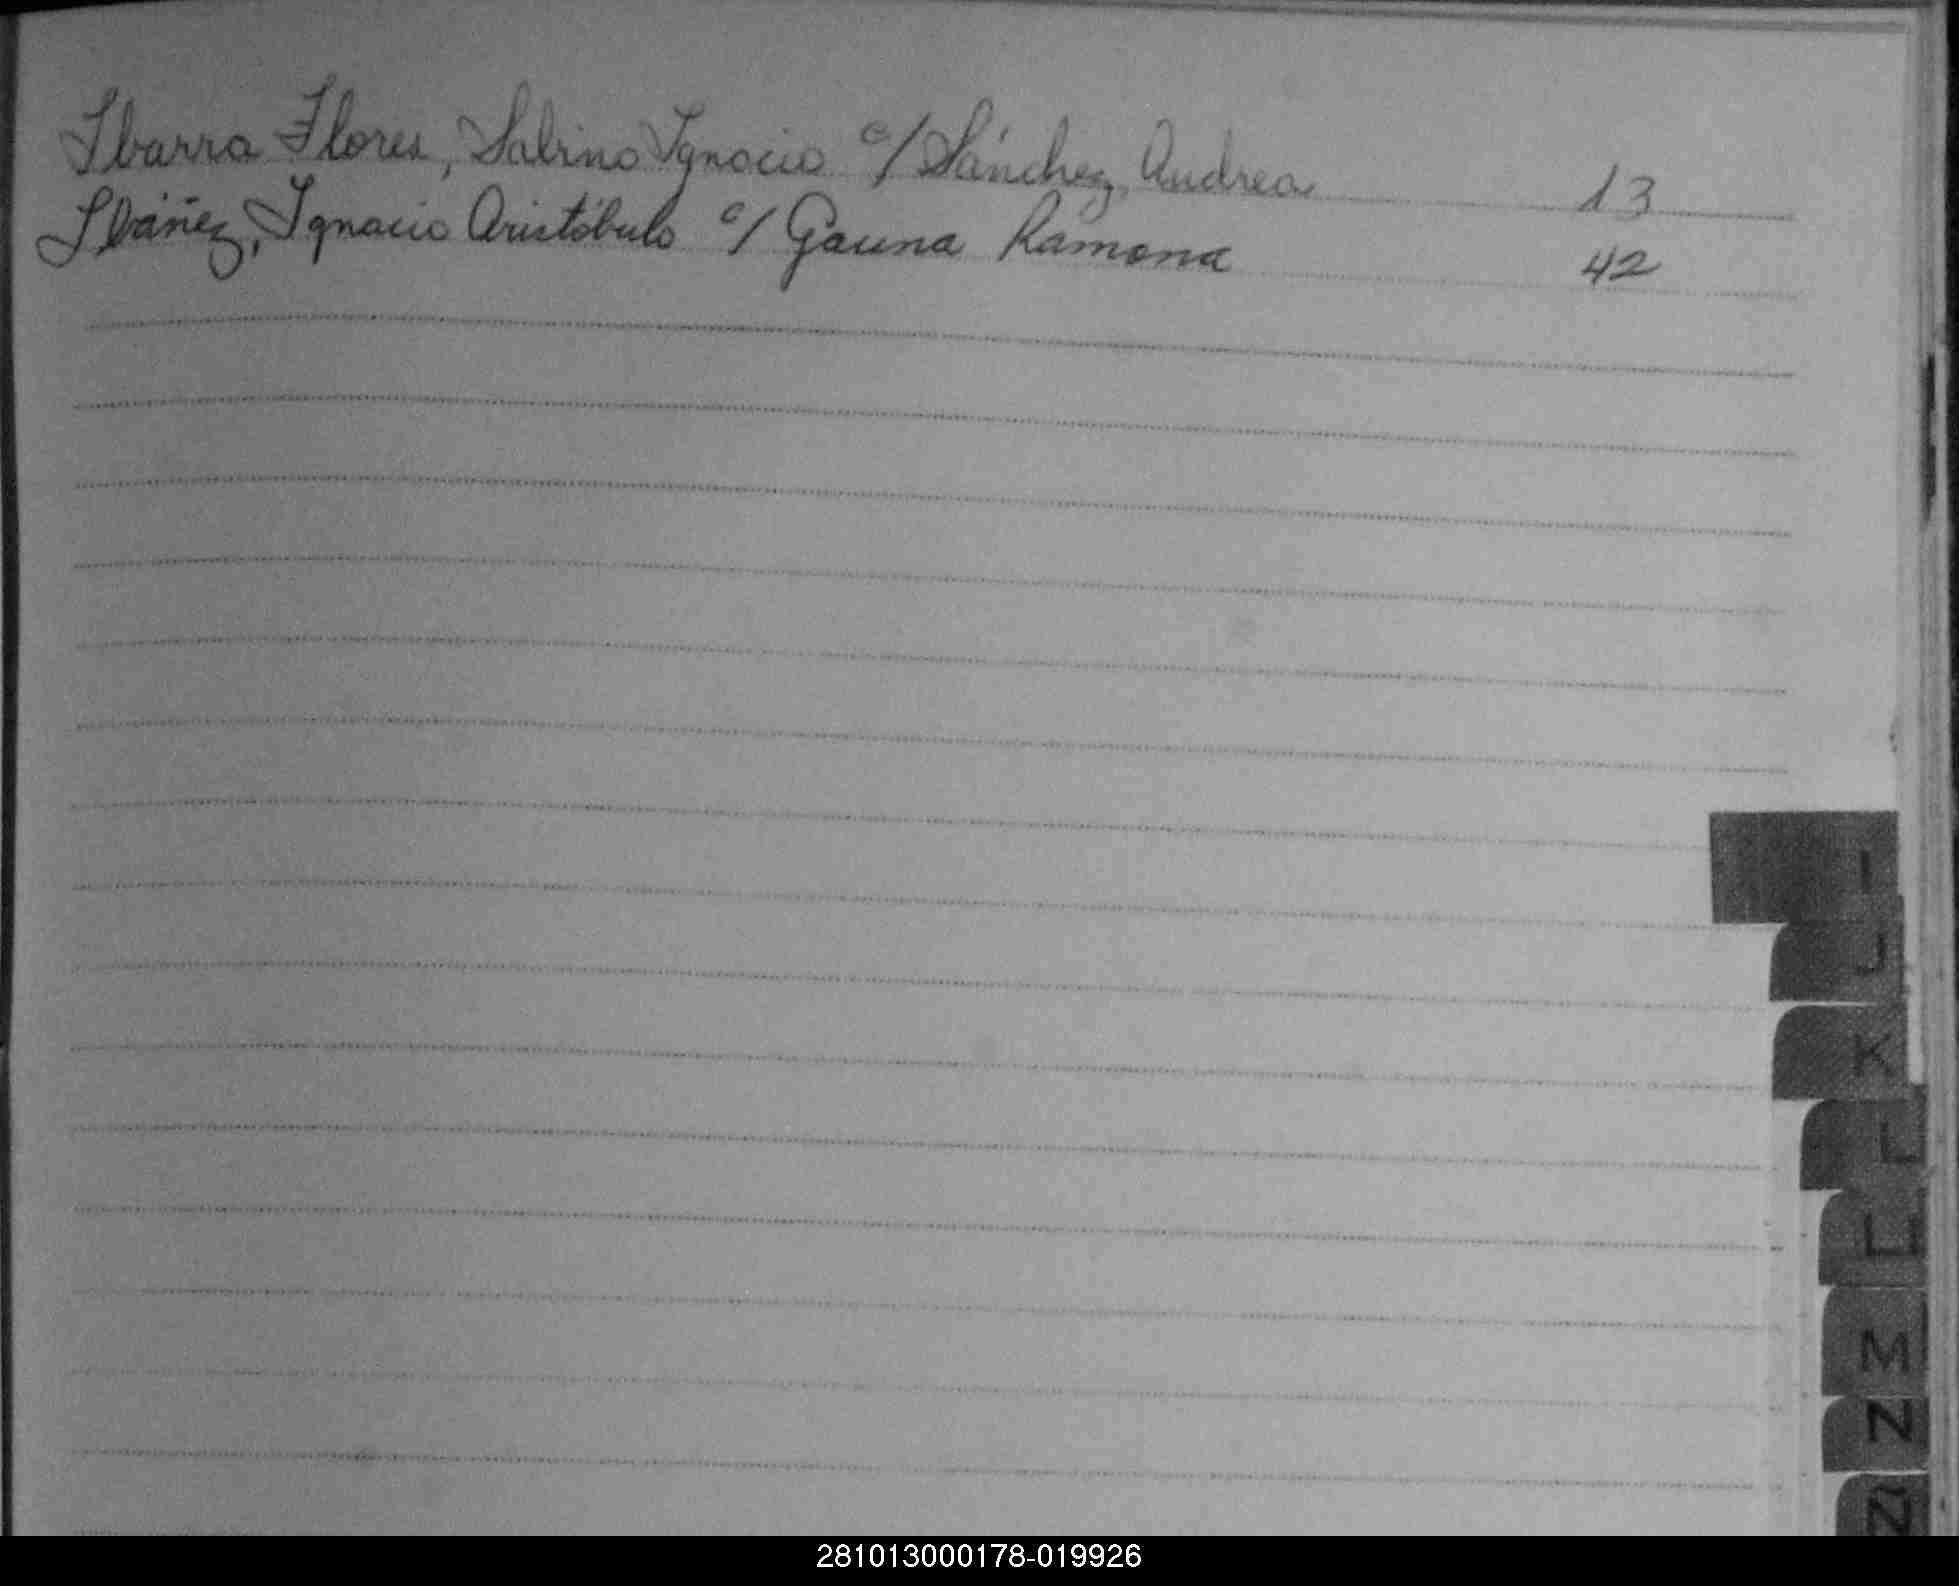 Ibarra Flores, Sabino Ignacio c/ Sánchez, Andrea 13
Ibáñez, Ignacio Aristóbulo c/ Gauna Ramona 42
I
J
K
L
LL
M
N
Ñ
281013000178-019926